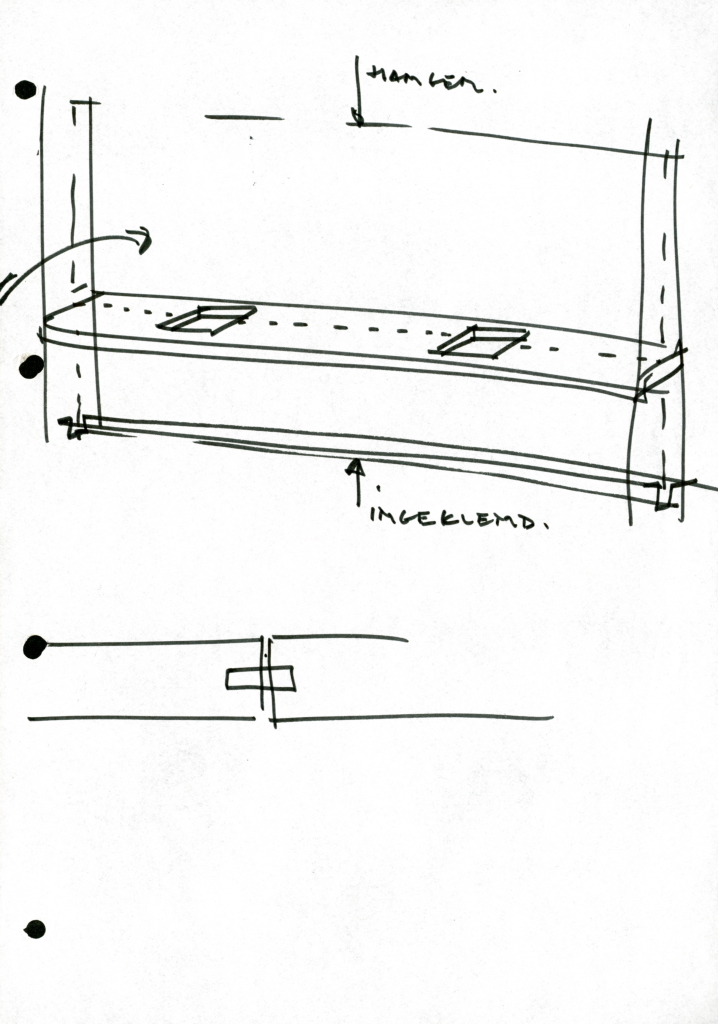 HANGER.
INGEKLEMD.